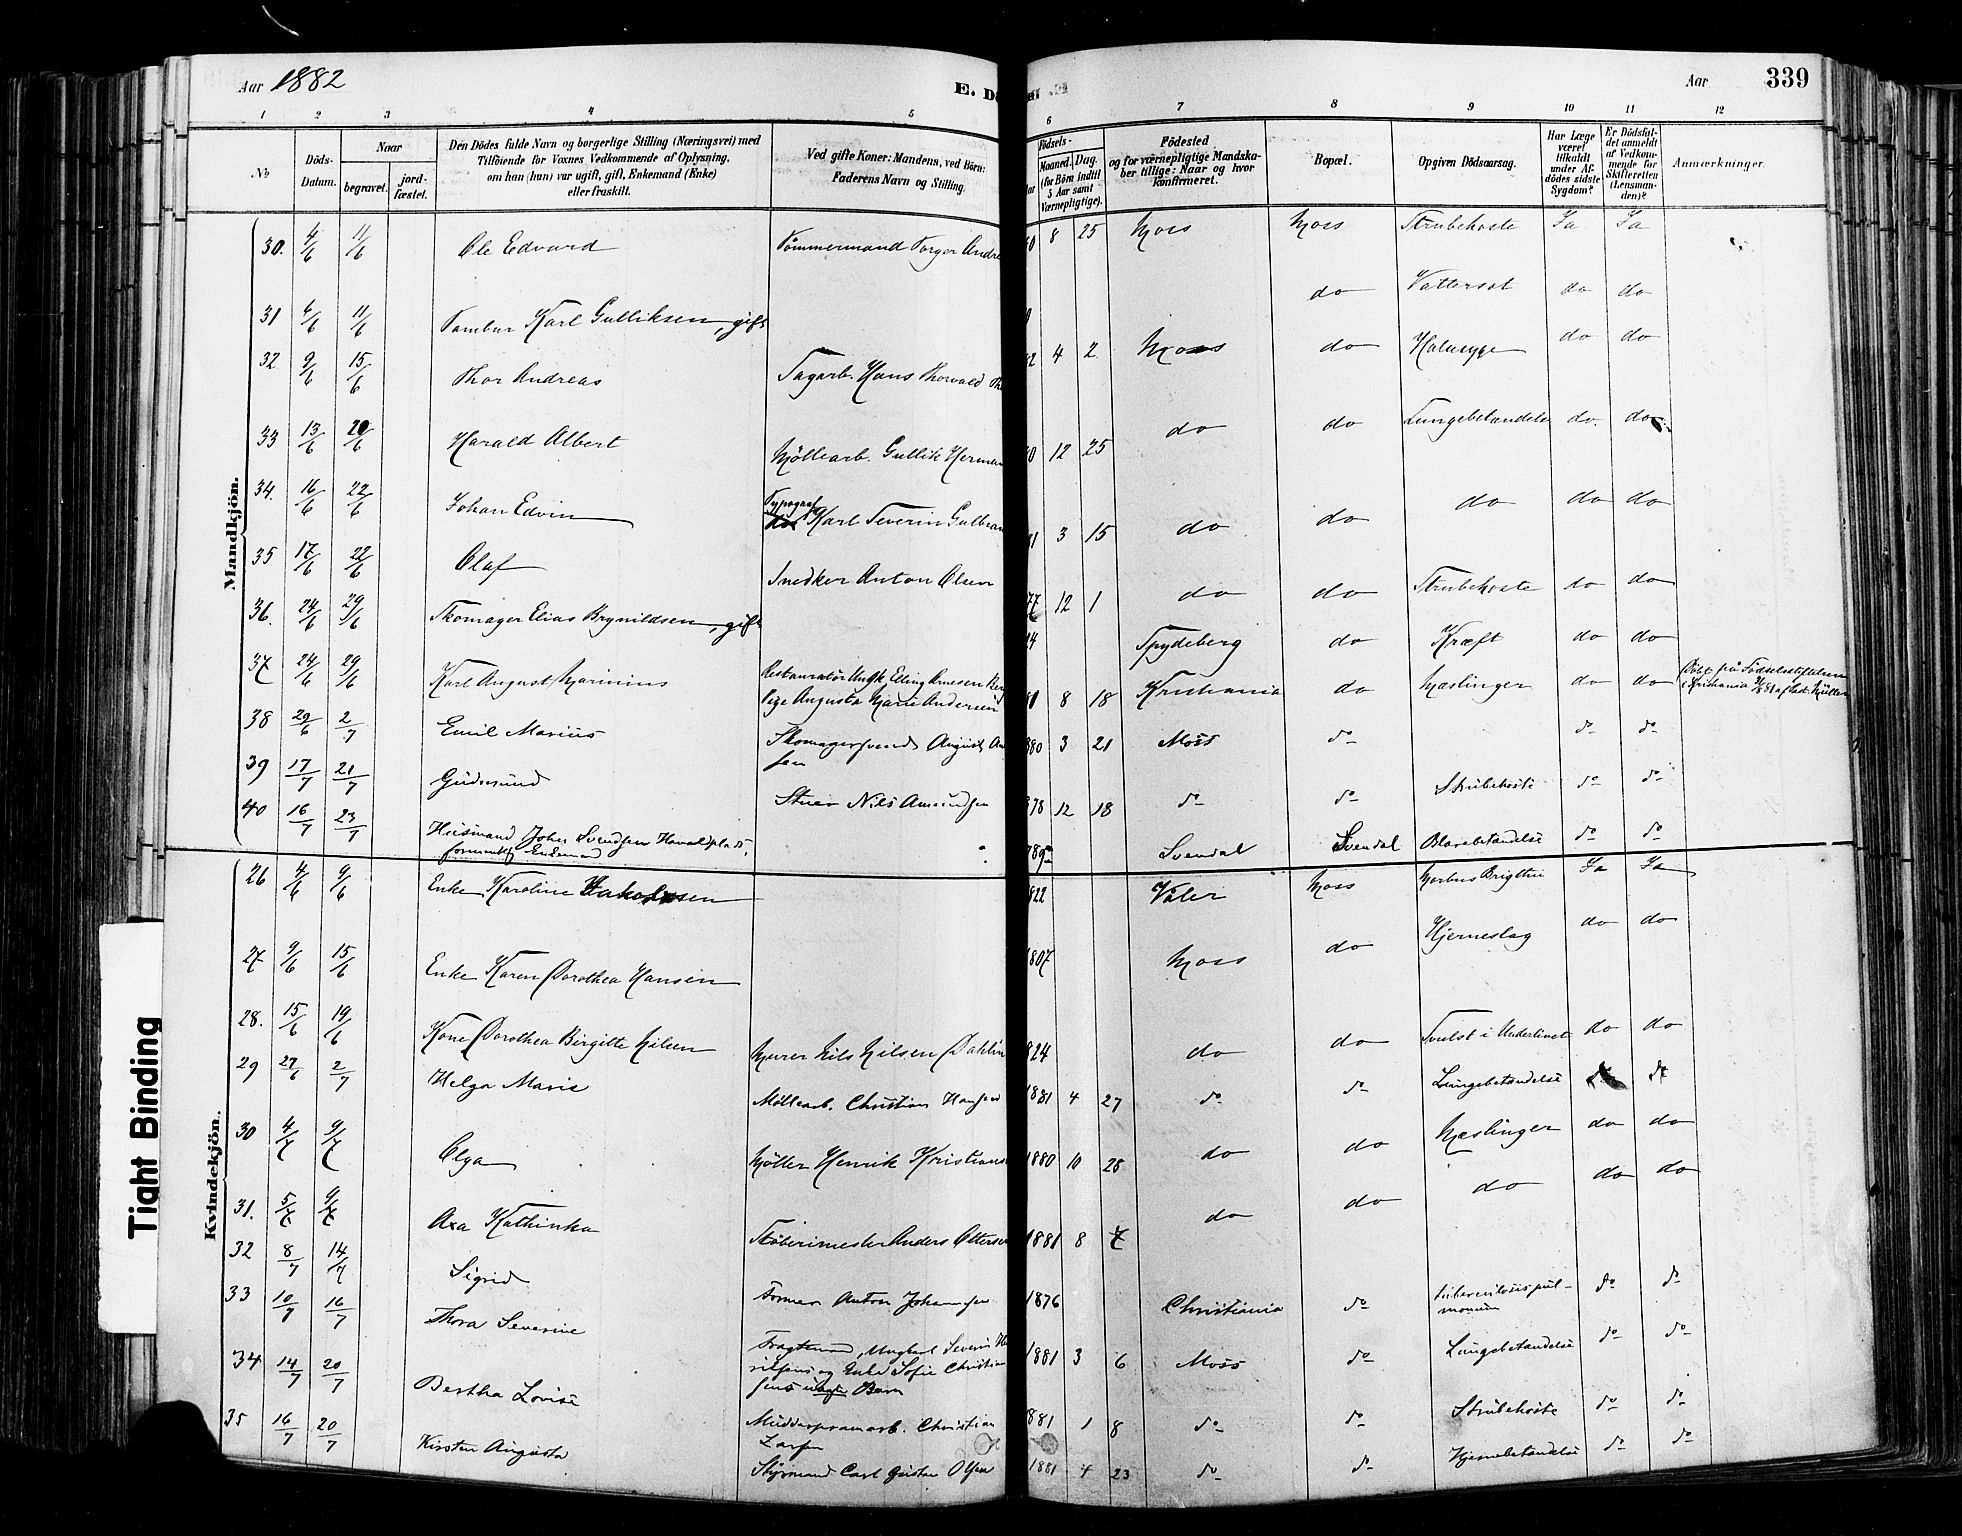 Aar 1882
E. Dö
Aar
339
1 2 3 4 5 6 7 8 9 10 11 12
No
Döds-Datum.
Naar
begravet.
jord-fæstet.
Den Dödes fulde Navn og borgerlige Stilling (Næringsvei) med
Tilföiende for Voxnes Vedkommende af Oplysning,
om han (hun) var ugift, gift, Enkemand (Enke)
eller fraskilt.
Ved gifte Koner: Mandens, ved Börn:
Faderens Navn og Stilling.
Födsels-
Maaned. Dag.
(for Börn indtil
5 Aar samt
Værnepligtige).
Födested
og for værnepligtige Mandska-
ber tillige: Naar og hvor
konfirmeret.
Bopæl.
Opgiven Dödsaarsag.
Har Læge
været
tilkaldt
under Af-
dödes sidste
Sygdom?
Er Dödsfal-
det anmeldt
af Vedkom-
mende for
Skifteretten
(Lensman-
den)?
Anmærkninger.
Mandkjön.
30. 4/6 11/6 Ole Edvard Tömmermand Torger Andre 8 25 Moss Moss Strubehoste Ja Ja
31 4/6 11/6 Tambur Karl Gulliksen, gift do Vattersot do do
32 9/6 15/6 Thor Andreas Dagarb. Hans Thorvald 4 2 Moss do Halssyge do do
33 13/6 20/6 Harald Albert Möllearb. Gullik Herman 12 25 do do Lungebetændelse do do
34. 16/6 22/6 Johan Edvin Typograf Karl Severin Gulbran 3 15 do do do do do
35 17/6 22/6 Olaf Snedker Anton Olsen 77 12 1 do do Strubehoste do do
36. 24/6 29/6 Skomager Elias Brynildsen, gift Spydeberg do Kræft do do
37 24/6 29/6 Karl August Marinius Restauratör Elling Arnesen
Pige Augusta Marie Andersen 8 18 Kristiania do Mæslinger do do Döbt på Födselsstiftelsen
i Kristiania
38 29/6 2/7 Emil Marius Skomagersvend August
sen 880 3 21 Moss do do do
39 17/7 21/7 Gudmund Stuer Nils Amundsen 878 12 18 do do Strubehoste do do
40 16/7 23/7 Huusmand Johs Svendsen
Enkemand Svendal Svendal Blærebetændelse do do
Kvindekjön.
26 4/6 9/6 Enke Karoline 822 Valer Moss Morbus Brigthii Ja Ja
27 9/6 15/6 Enke Karen Dorothea Hansen 1807 Moss do Hjerneslag do do
28. 15/6 19/6 Kone Dorothea Birgitte Nilsen Murer Nils Nilsen Dahlin 824 do do Svulst i Underlivet do do
29 27/6 2/7 Helga Marie Möllearb. Christian Hansen 1881 4 27 do do Lungebetændelse do do
30 4/7 9/7 Olga Möller Henrik Kristians 1880 10 28 do do Mæslinger do do
31. 5/7 9/7 Axa Kathinka Stöberimester Anders Ottersen 1881 8 7 do do do do do
32 8/7 14/7 Sigrid Former Anton Johannsen 1876 Christiania do tuberculosis pul-
monum do do
33 10/7 16/7 Thora Severine Fragtemand, Ungkarl Severin
og Enke Sofie Christian
sens uægte Barn 1881 3 6 Moss do Lungebetændelse do do
34 14/7 20/7 Bertha Lovise Mudderpramarb. Christian
Larsen 1881 1 8 do do Strubehoste do do
35 16/7 20/7 Kirsten Augusta Styrmand Carl Gustav Olsen 1881 4 23 do do Hjernebetændelse do do
Tight Binding